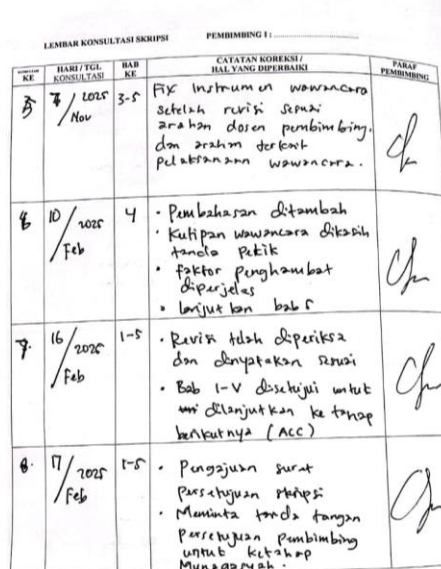 LEMBAR KONSULTASI SKRIPSI PEMBIMBING I : ............................
KE HARI / TGL KONSULTASI BAB KE CATATAN KOREKSI / HAL YANG DIPERBAIKI PARAF PEMBIMBING
7/Nov 2025 3-5 Fix Instrumen wawancara
setelah revisi sesuai
arahan dosen pembimbing.
dan arahan terkait
pelaksanaan wawancara.
10/Feb 2025 4 • Pembahasan ditambah
• Kutipan wawancara dikasih
tanda petik
• faktor penghambat
diperjelas
• lanjutkan bab 5
7. 16/Feb 2025 1-5 • Revisi telah diperiksa
dan dinyatakan sesuai
• Bab I-V disetujui untuk
dilanjutkan ke tahap
berikutnya (ACC)
8. 17/Feb 2025 1-5 • Pengajuan surat
persetujuan skripsi
• Meminta tanda tangan
Persetujuan pembimbing
untuk ketahap
Munaqasyah.